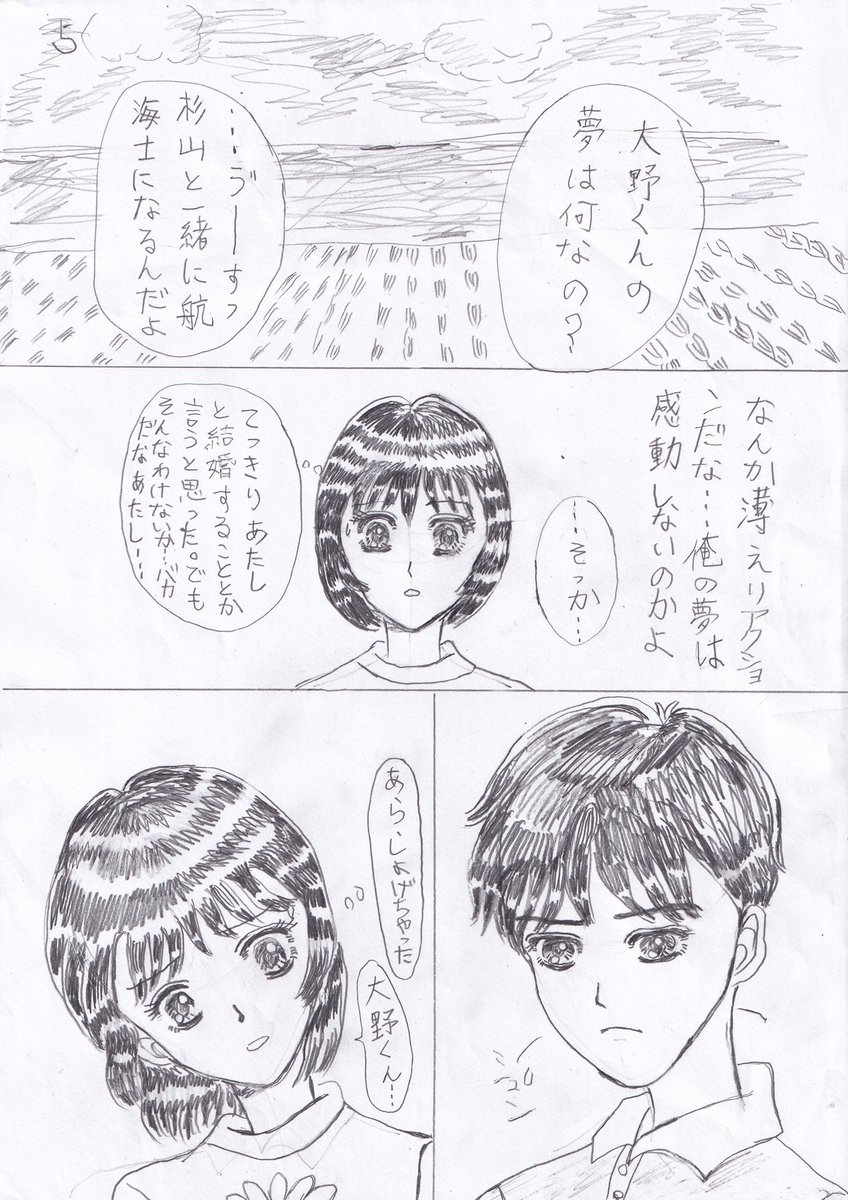 5
大野くんの
夢は何なの？
…ゔーすっ
杉山と一緒に航
海士になるんだよ
なんか薄えリアクショ
ンだな…俺の夢は
感動しないのかよ
…そっか…
てっきりあたし
と結婚することとか
言うと思った。でも
そんなわけないか…バカ
だなあたし…
シュン
あら、しょげちゃった
大野くん…